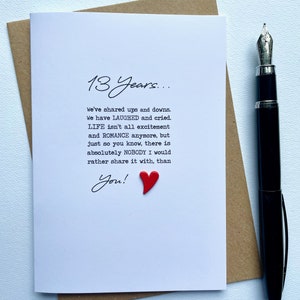 13 Years...
We've shared ups and downs.
We have LAUGHED and cried.
LIFE isn't all excitement
and ROMANCE anymore, but
just so you know, there is
absolutely NOBODY I would
rather share it with, than
You!